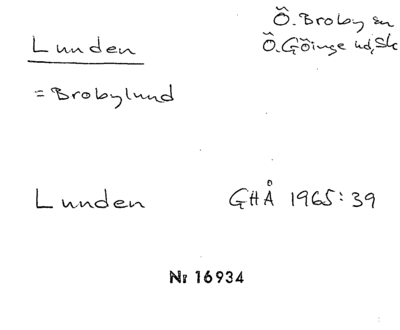 Ö. Broby sn
Ö. Göinge hd, Sk
Lunden
= Brobylund
Lunden GHÅ 1965:39
Nr 16934